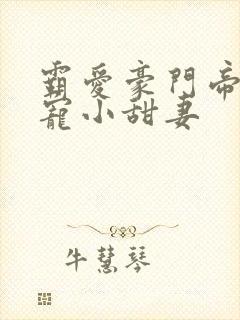 霸愛豪門帝
寵小甜妻
牛慧琴